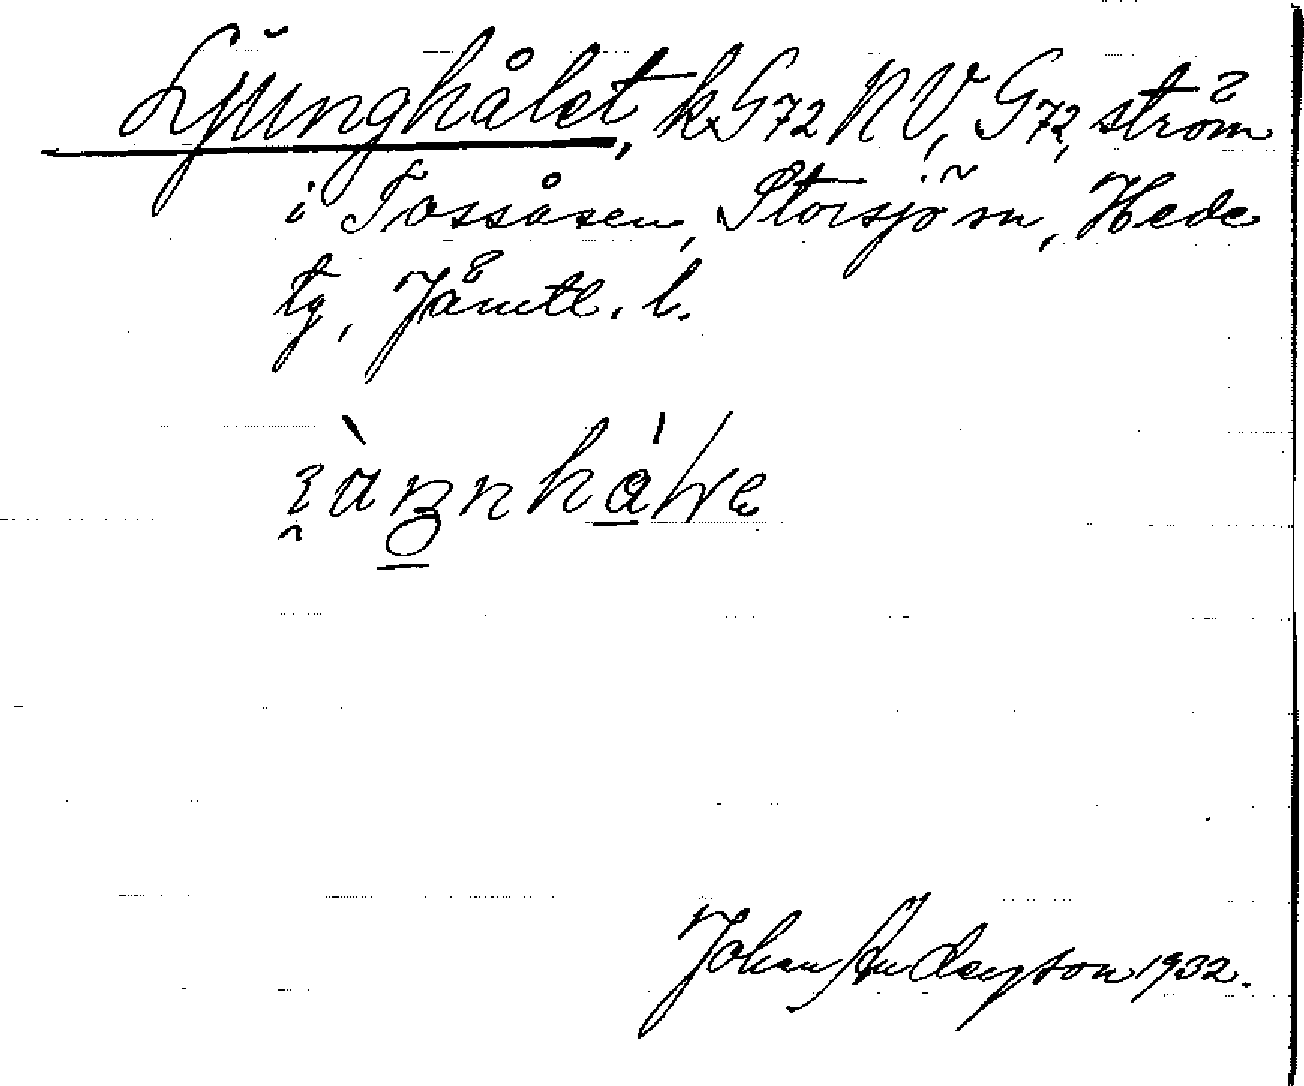 Ljunghålet, k. G72 NV, G72, ström
i Tossåsen, Storsjö sn, Hede
tg, Jämtl. l.
Johan Anderson 1932.